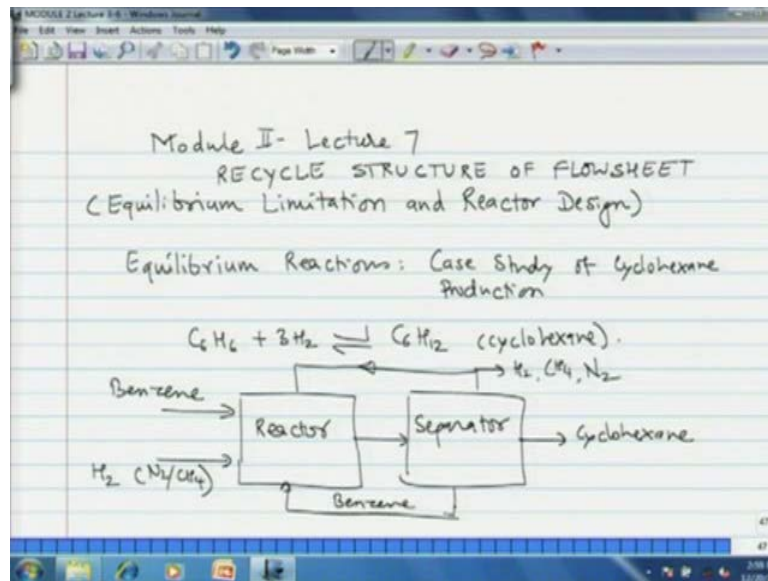 MODULE 2 Lecture 1-6 - Windows Journal
File Edit View Insert Actions Tools Help
Page Width
Module II- Lecture 7
RECYCLE STRUCTURE OF FLOWSHEET
(Equilibrium Limitation and Reactor Design)
Equilibrium Reactions: Case Study of Cyclohexane
Production
C6H6 + 3H2 ⇌ C6H12 (cyclohexane).
H2, CH4, N2
Benzene
Reactor
Separator
Cyclohexane
H2 (N2/CH4)
Benzene
47
47